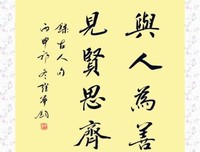 與人為善
見賢思齊
錄古人句
丙申初冬